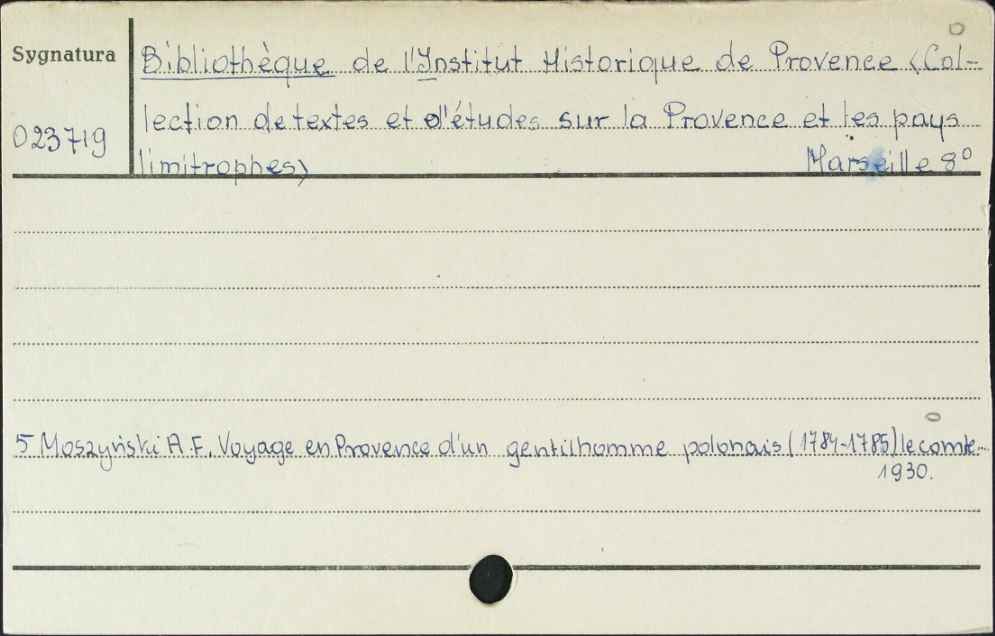 Sygnatura
023719
Bibliothèque de l'Institut Historique de Provence (Col-
lection de textes et d'études sur la Provence et les pays
limitrophes) Marseille 8°
5 Moszyński A.F. Voyage en Provence d'un gentilhomme polonais (1784-1785) le comte...
1930.